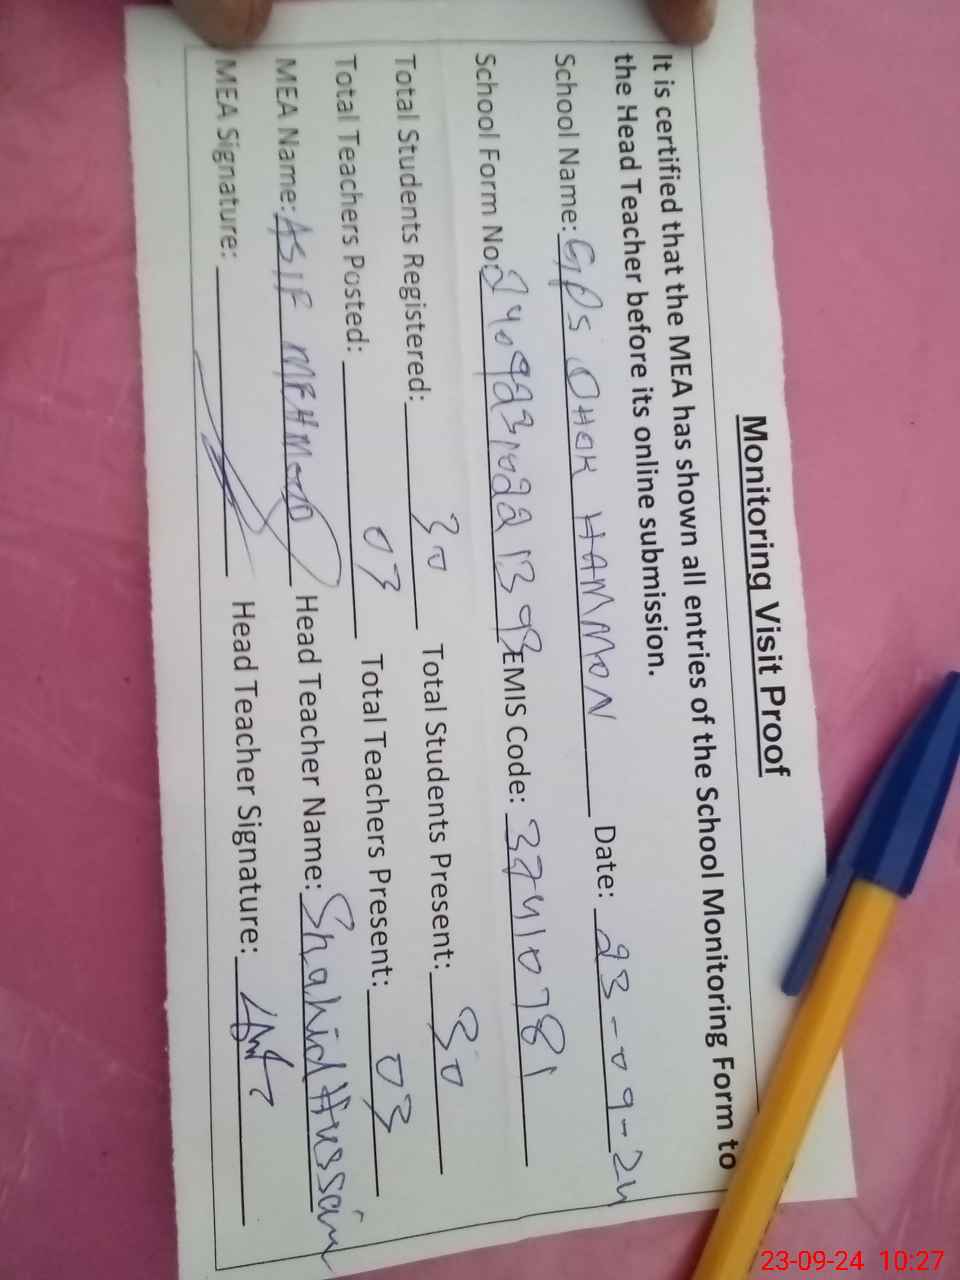 Monitoring Visit Proof
It is certified that the MEA has shown all entries of the School Monitoring Form to
the Head Teacher before its online submission.
School Name: GPS CHAK HAMMON Date: 23-09-24
School Form No: 240923102213 93 EMIS Code: 37410781
Total Students Registered: 30 Total Students Present: 30
Total Teachers Posted: 03 Total Teachers Present: 03
MEA Name: ASIF MEHMOOD Head Teacher Name: Shahid Hussain
MEA Signature: Head Teacher Signature:
23-09-24 10:27